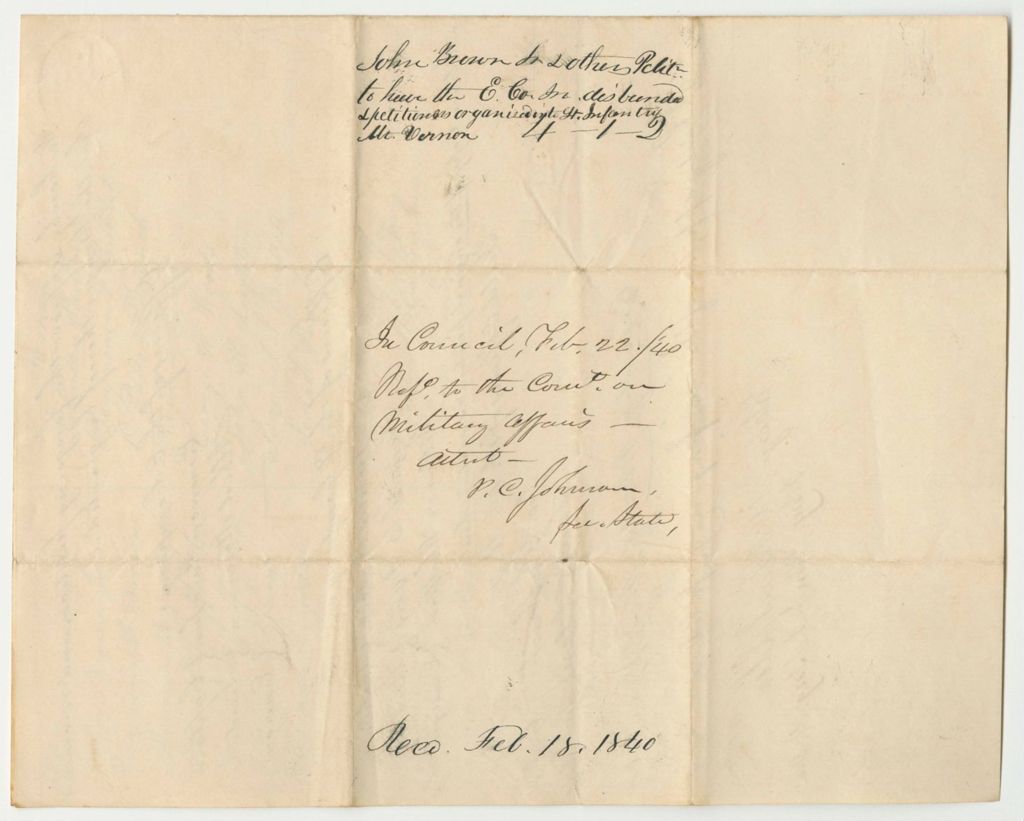 John Brown Jr & others Petitn
to have the E. Co. In. disbanded
& petitioners organized into Lt. Infantry
Mt. Vernon 4 - 1 - 2
In Council, Feb. 22./40
Refd. to the Comee. on
Military Affairs —
Attest —
P. C. Johnson,
Sec. State,
Recd. Feb. 18. 1840